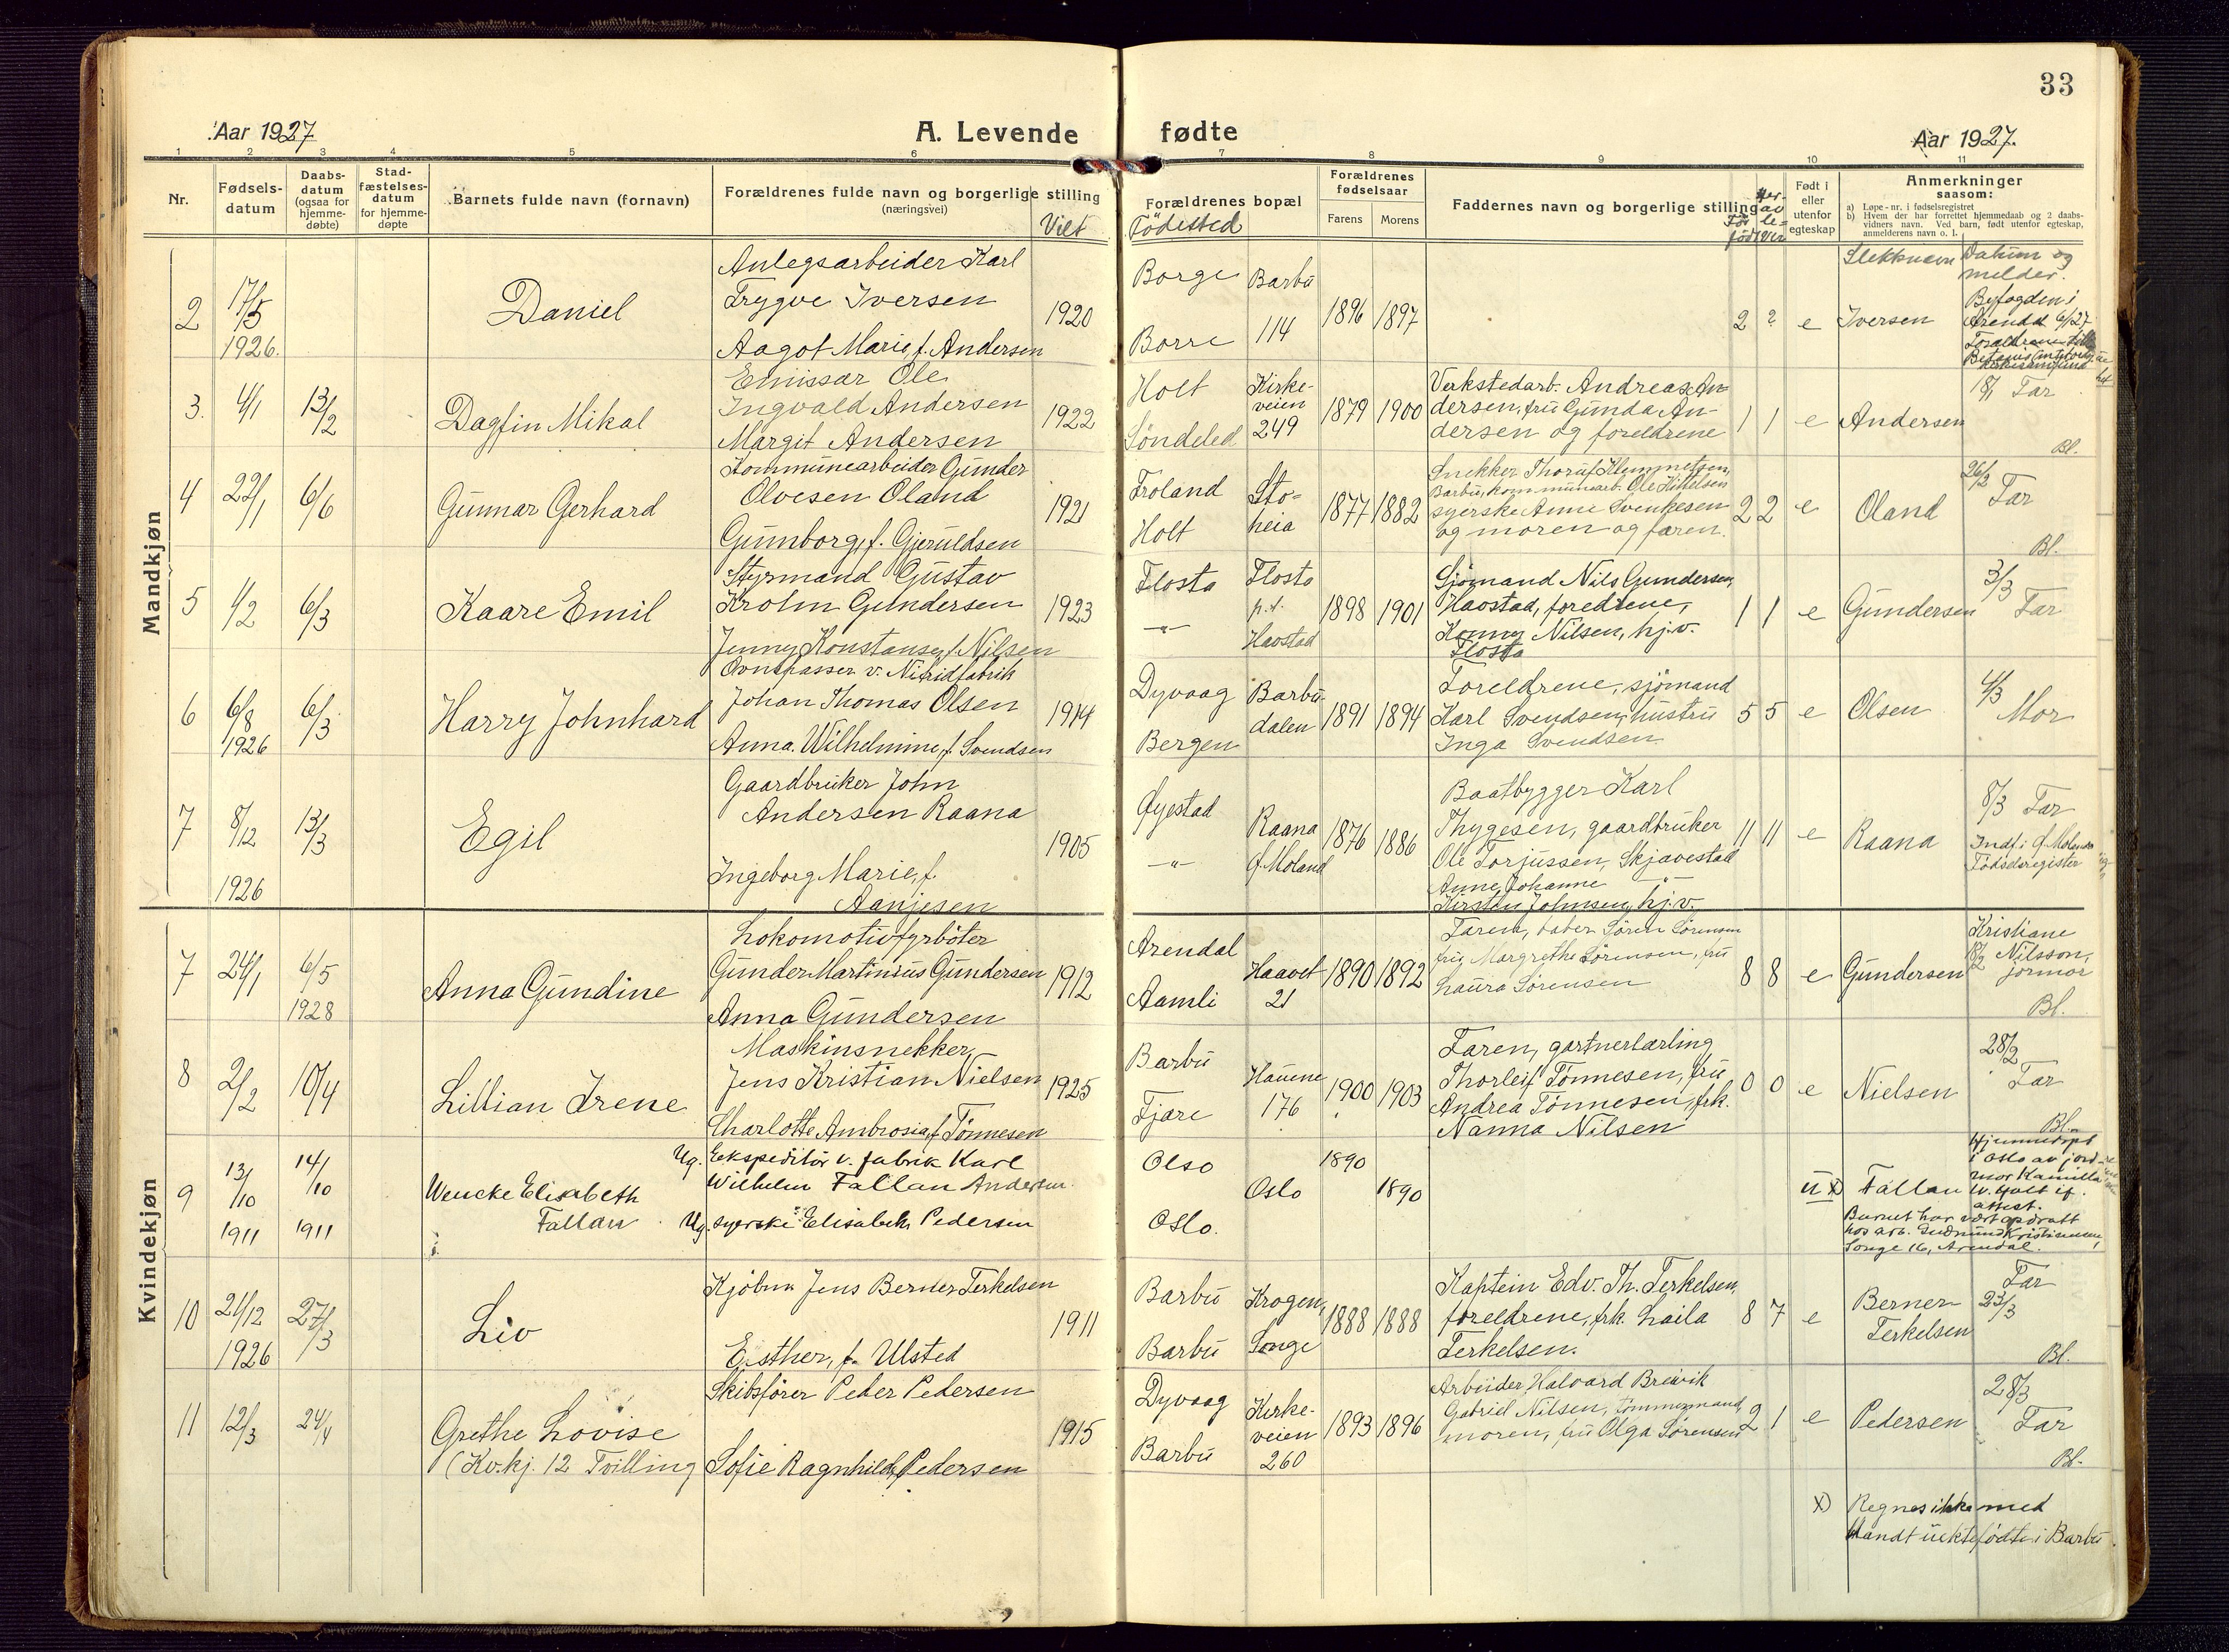 33
Aar 1927
A. Levende fødte
Aar 1927.
1 2 3 4 5 6 7 8 9 10 11
Nr.
Fødsels-
datum
Daabs-
datum
(ogsaa for
hjemme-
døbte)
Stad-
fæstelses-
datum
for hjemme-
døpte
Barnets fulde navn (fornavn)
Forældrenes fulde navn og borgerlige stilling
(næringsvei)
Viet
Forældrenes bopæl
Fødested
Forældrenes
fødselsaar
Farens
Morens
Faddernes navn og borgerlige stilling
Født i
eller
utenfor
egteskap
Anmerkninger
saasom:
a) Løpe-nr. i fødselsregistret
b) Hvem der har forrettet hjemmedaab og 2 daabs-
vidners navn. Ved barn, født utenfor egteskap,
anmelderens navn o. l.
Slektsnavn
Datum og
melder.
Mandkjøn
2
17/5
1926.
Daniel
Anlegsarbeider Karl
Trygve Iversen
Aagot Marie, f. Andersen
1920
Borge
Borre
Barbu
114
1896
1897
2 ? e
Iversen
Byfogden i
Arendal 6/1 27
3.
4/1
13/2
Dagfin Mikal
Emissær Ole
Ingvald Andersen
Margit Andersen
1922
Holt
Søndeled
Kirke-
veien
249
1879
1900
Verkstedarb. Andreas An-
dersen, fru Gunda An-
dersen og foreldrene
1 1 e
Andersen
18/1 Far
Bl.
4
22/1
6/6
Gunnar Gerhard
Kommunearbeider Gunder
Olvesen Oland
Gunborg, f. Gjeruldsen
1921
Froland
Holt
Sto-
heia
1877
1882
Snekker Thoruf Klemmetsen,
Barbu, kommunearb. Ole Kittelsen
syerske Anne Svenkesen
og moren og faren.
2 2 e
Oland
26/2
Far
Bl.
5
1/2
6/3
Kaare Emil
Styrmand Gustav
Krolm Gundersen
Jenny Konstanse, f. Nilsen
1923
Flosta
—"—
Flosta
p.t.
Havstad
1898
1901
Sjømand Nils Gundersen,
Havstad, foreldrene,
Konny Nilsen, hj.v.
Flosta
1 1 e
Gundersen
3/3
Far
6
6/8
1926
6/3
Harry Johnhard
Ovnspasser v. Nitridfabrik
Johan Thomas Olsen
Anna Wilhelmine, f. Svendsen
1914
Dyvaag
Bergen
Barbu-
dalen
1891
1894
Foreldrene, sjømand
Karl Svendsen, hustru
Inga Svendsen
5 5 e
Olsen
4/3
Mor
7
8/12
1926
13/3
Egil
Gaardbruker John
Andersen Raana
Ingeborg Marie, f.
Aanjesen
1905
Øyestad
—"—
Raana
Ø. Moland
1876
1886
Baatbygger Karl
Thygesen, gaardbruker
Ole Torjussen, Skjavestad
Anne Johanne
Kirsten Johnsen, hj.v.
11 11 e
Raana
8/3 Far
Indf. i Ø. Molands
Fødselsregister
Kvindekjøn
7
24/1
6/5
1928
Anna Gundine
Lokomotivfyrbøter
Gunder Martinius Gundersen
Anna Gundersen
1912
Arendal
Aamli
Haavet
21
1890
1892
Faren, Søren Sørensen
fru Margrethe Sørensen, fru
Laura Sørensen
8 8 e
Gundersen
Kristiane
18/2 Nilsson,
jormor
Bl.
8
2/2
10/4
Lillian Irene
Maskinsnekker
Jens Kristian Nielsen
Charlotte Ambrosia, f. Tønnesen
1925
Barbu
Fjære
Hauene
176
1900
1903
Faren, gartnerlærling
Thorleif Tønnesen, fru
Andrea Tønnesen, frk.
Nanna Nilsen
0 0 e
Nielsen
28/2
Far
Bl.
9
13/10
1911
14/10
1911
Wencke Elisabeth
Fallan
Ug. Ekspeditør v. fabrik Karl
Wilhelm Fallan Andersen.
Ug. syerske Elisabeth Pedersen
Olso
Oslo.
Oslo
1890
1890
u x)
Fallan
Hjemmedøpt
i Oslo av jord-
mor Kamilla
W. Holt if.
attest.
Barnet har vært opdratt
hos arb. Gudmund Kristiansen,
Songe 16, Arendal.
10
21/12
1926
27/3
Liv
Kjøbm. Jens Berner Terkelsen
Esther, f. Ulsted
1911
Barbu
Barbu
Krogen,
Songe
1888
1888
Kaptein Edv. Th. Terkelsen,
foreldrene, frk. Laila
Terkelsen.
8 7 e
Berner
Terkelsen
Far
23/3
Bl.
11
12/3
24/4
Grethe Lovise
(Kv.kj. 12 Tvilling
Skibsfører Peder Pedersen
Sofie Ragnhild, f. Pedersen
1915
Dyvaag
Barbu
Kirke-
veien
260
1893
1896
Arbeider Halvard Breivik
Gabriel Nilsen, tømmermand,
moren, fru Olga Sørensen
2 1 e
Pedersen
28/3
Far
Bl.
x) Regnes ikke med
blandt uektefødte i Barbu.